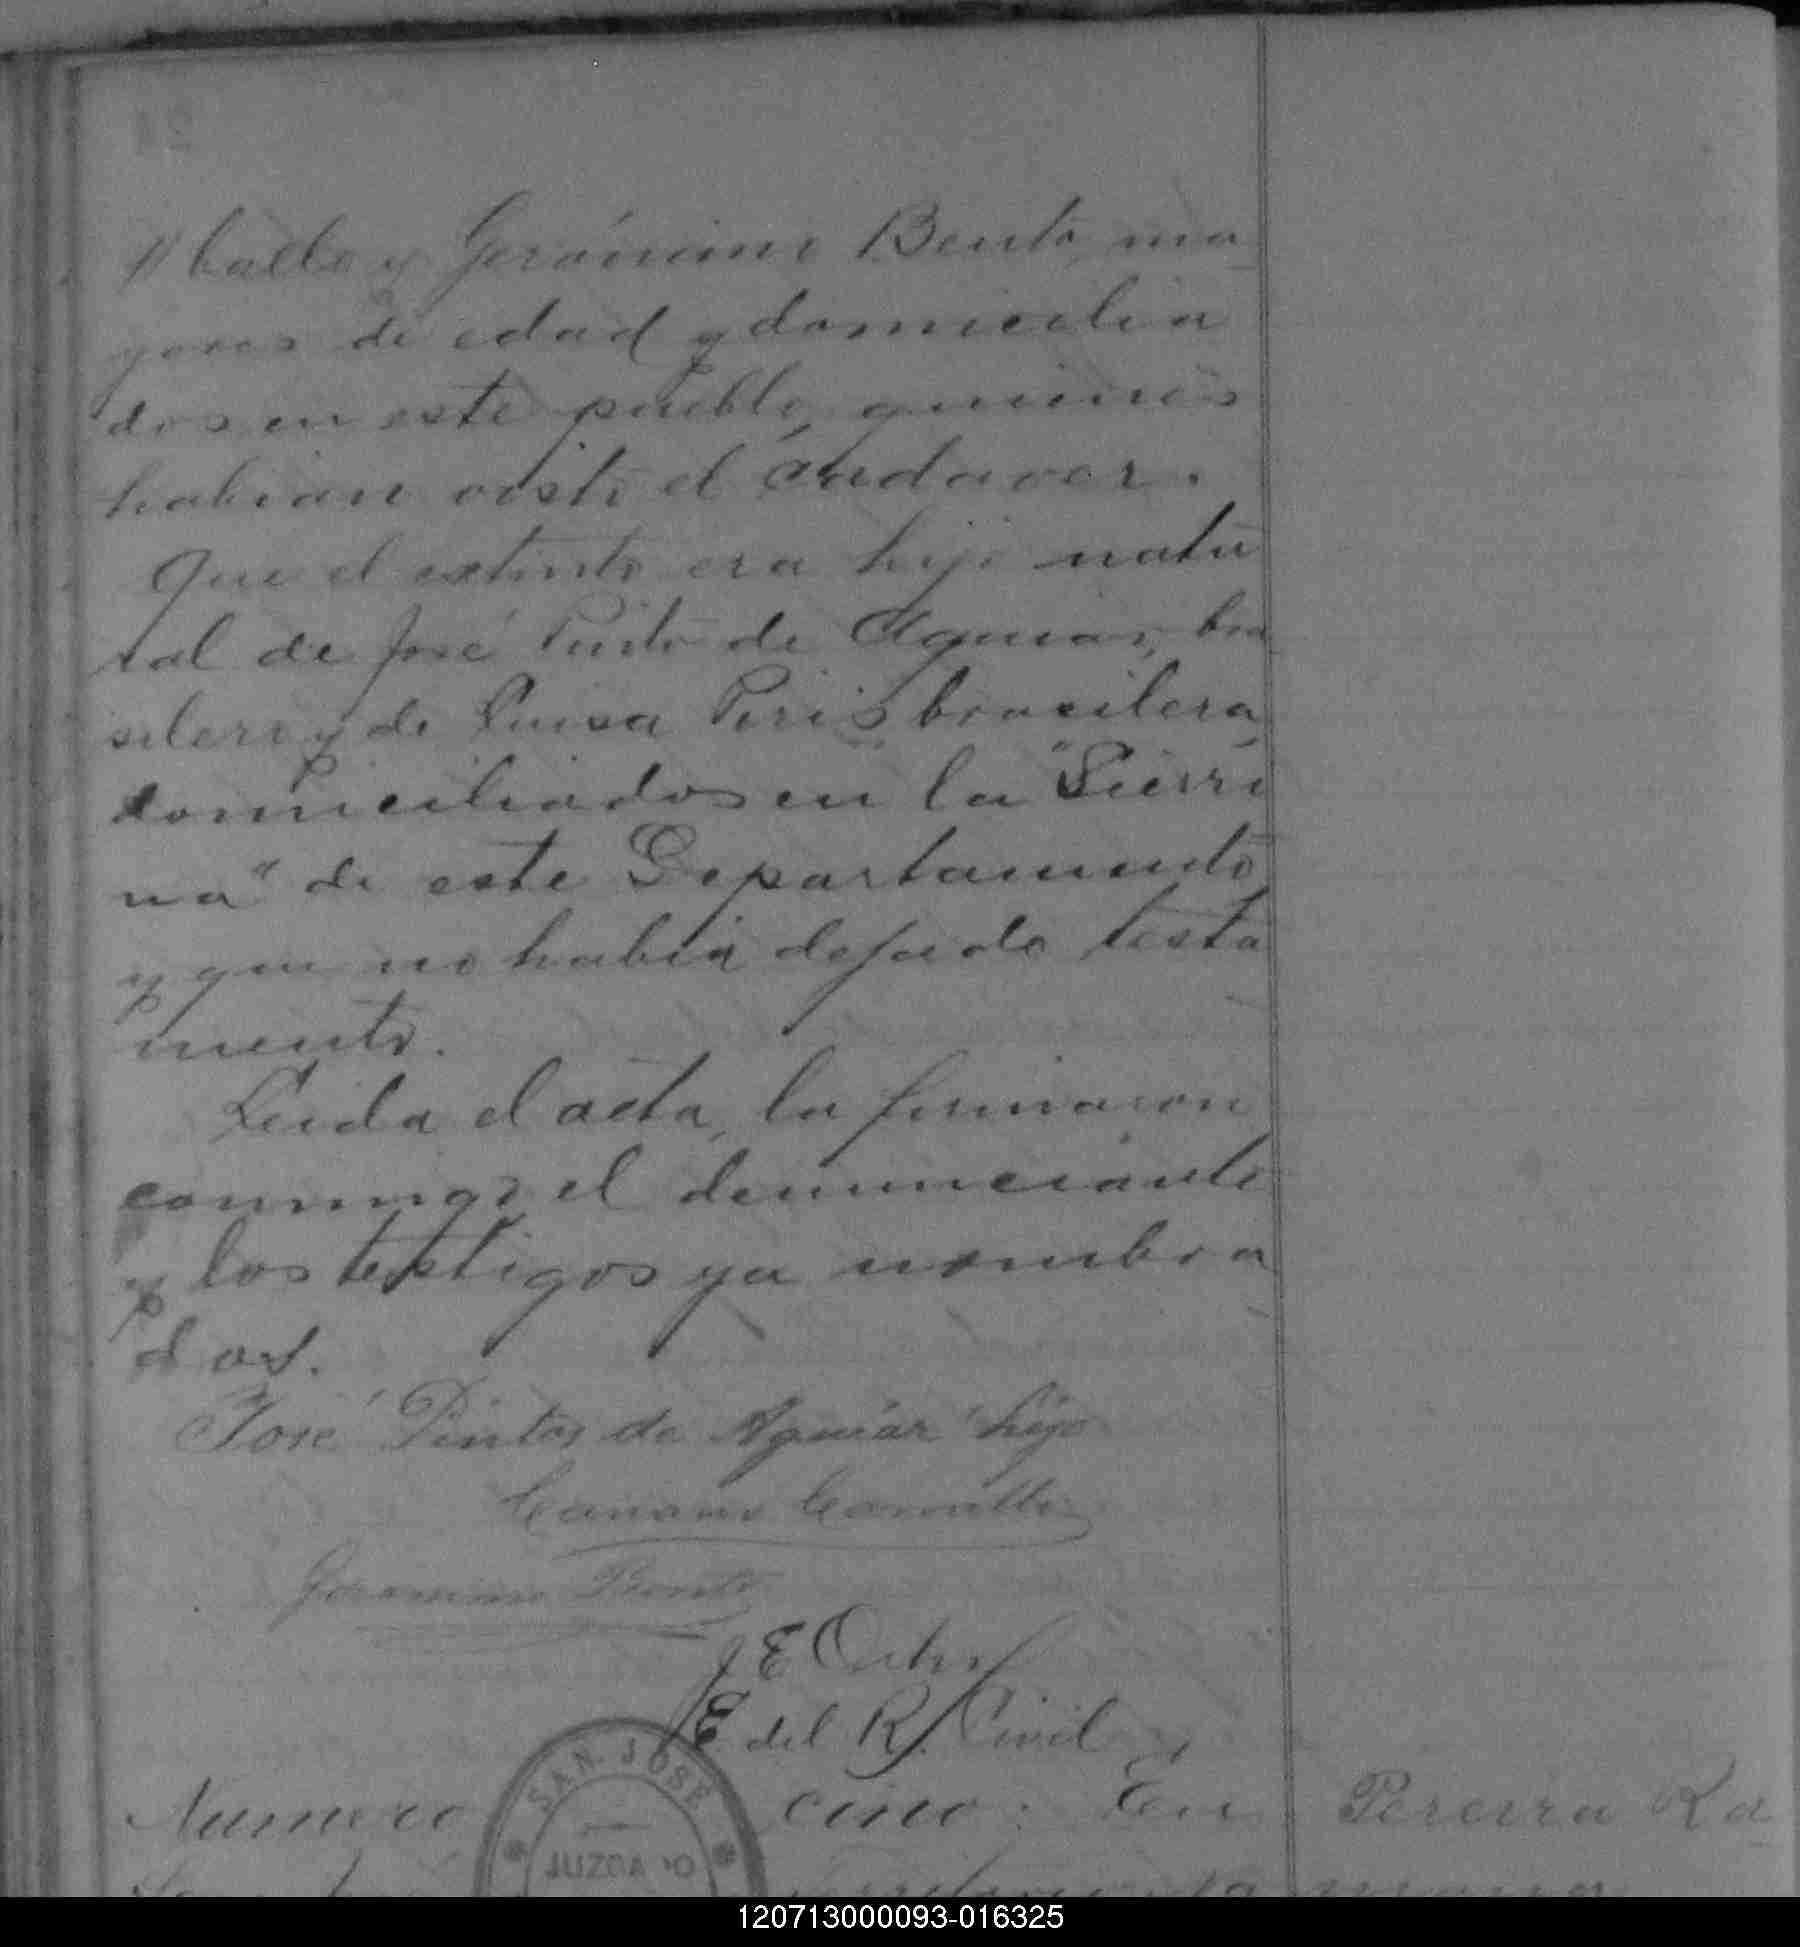 ballo y Gerónimo Bento, ma
yores de edad y domicilia
dos en este pueblo, quienes
habian visto el cadaver.
Que el extinto era hijo natu
ral de José Pinto de Aguiar, bra
silero y de Luisa Piris brasilera,
domiciliados en la "Sierri
na" de este Departamento
y que no habia dejado testa
mento.
Leida el acta, la firmaron
conmigo el denunciante
y los testigos ya nombra
dos.
José Pintos de Aguiar hijo
Carvallo
Geronimo Bento
J E
E del R. Civil
SAN JOSE
JUZGADO
Numero cinco: En
Pereira Ra